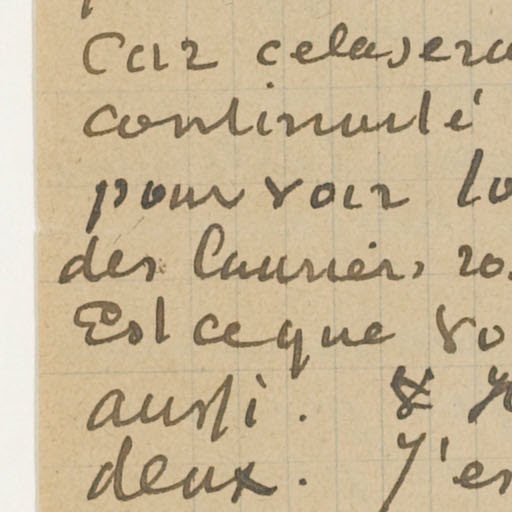 Car cela sera
continuité
pour voir lo
des lauriers ro
Est ce que vo
aussi. &
deux. J'es